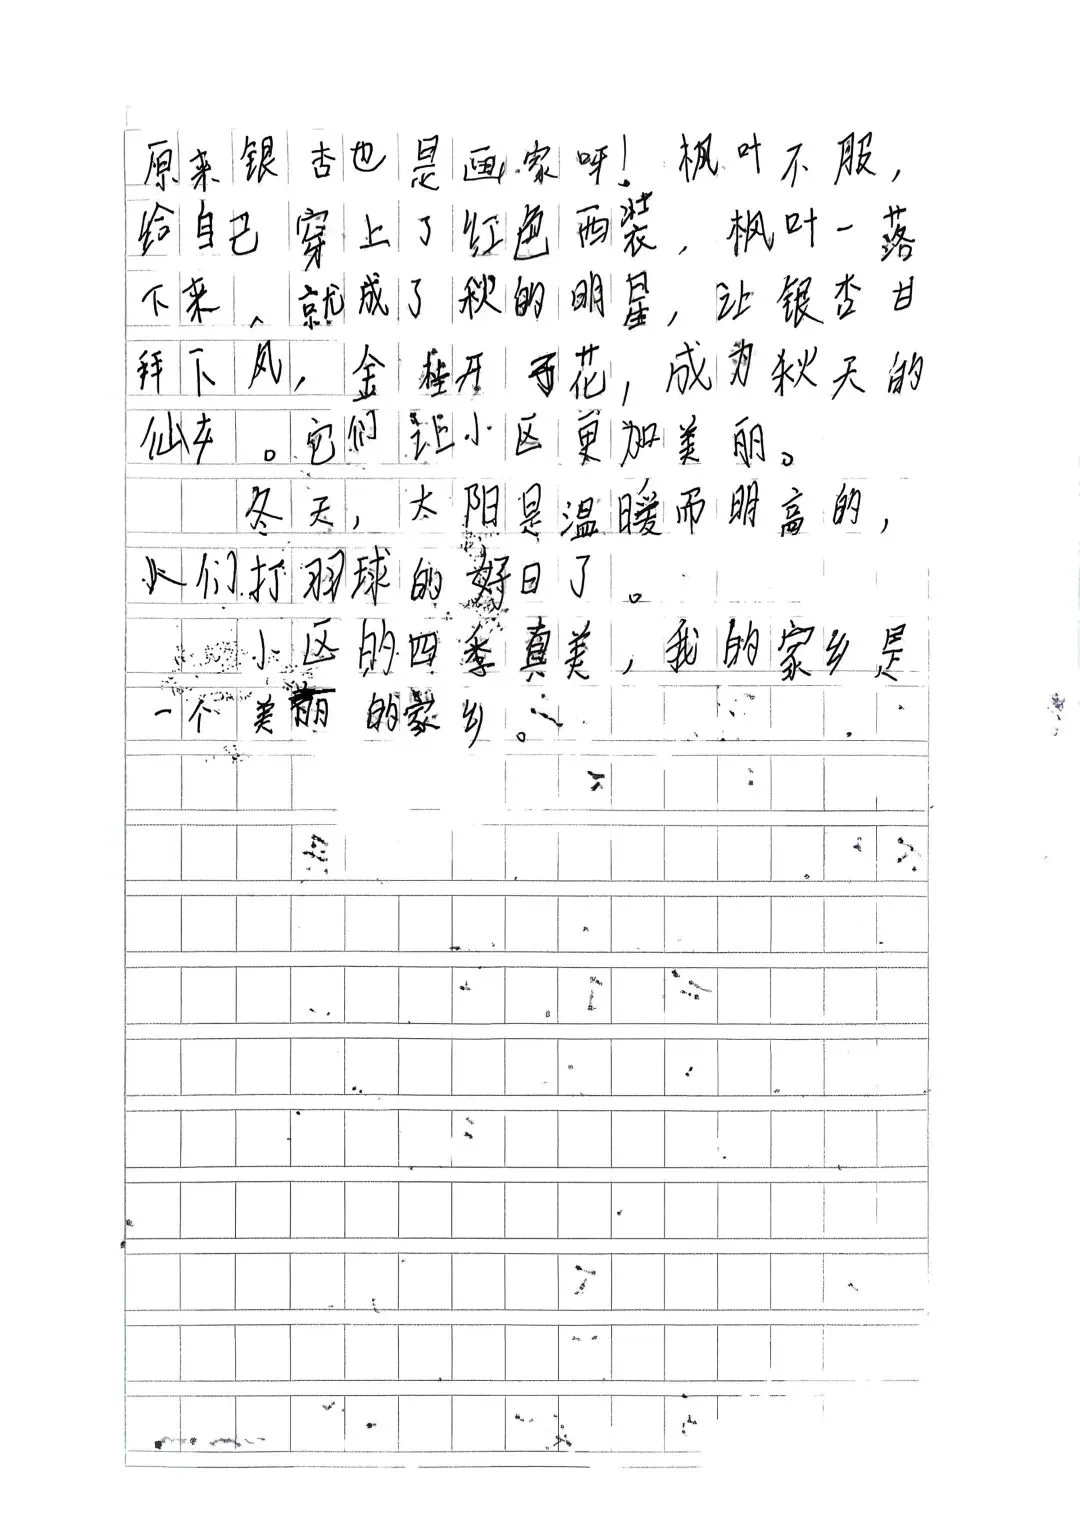 原来银杏也是画家呀！枫叶不服，
给自己穿上了红色西装，枫叶一落
下来，就成了秋的明星，让银杏甘
拜下风，金桂开了花，成为秋天的
仙女。它们让小区更加美丽。
冬天，太阳是温暖而明高的，
人们打羽球的好日了。
小区的四季真美，我的家乡是
一个美丽的家乡。